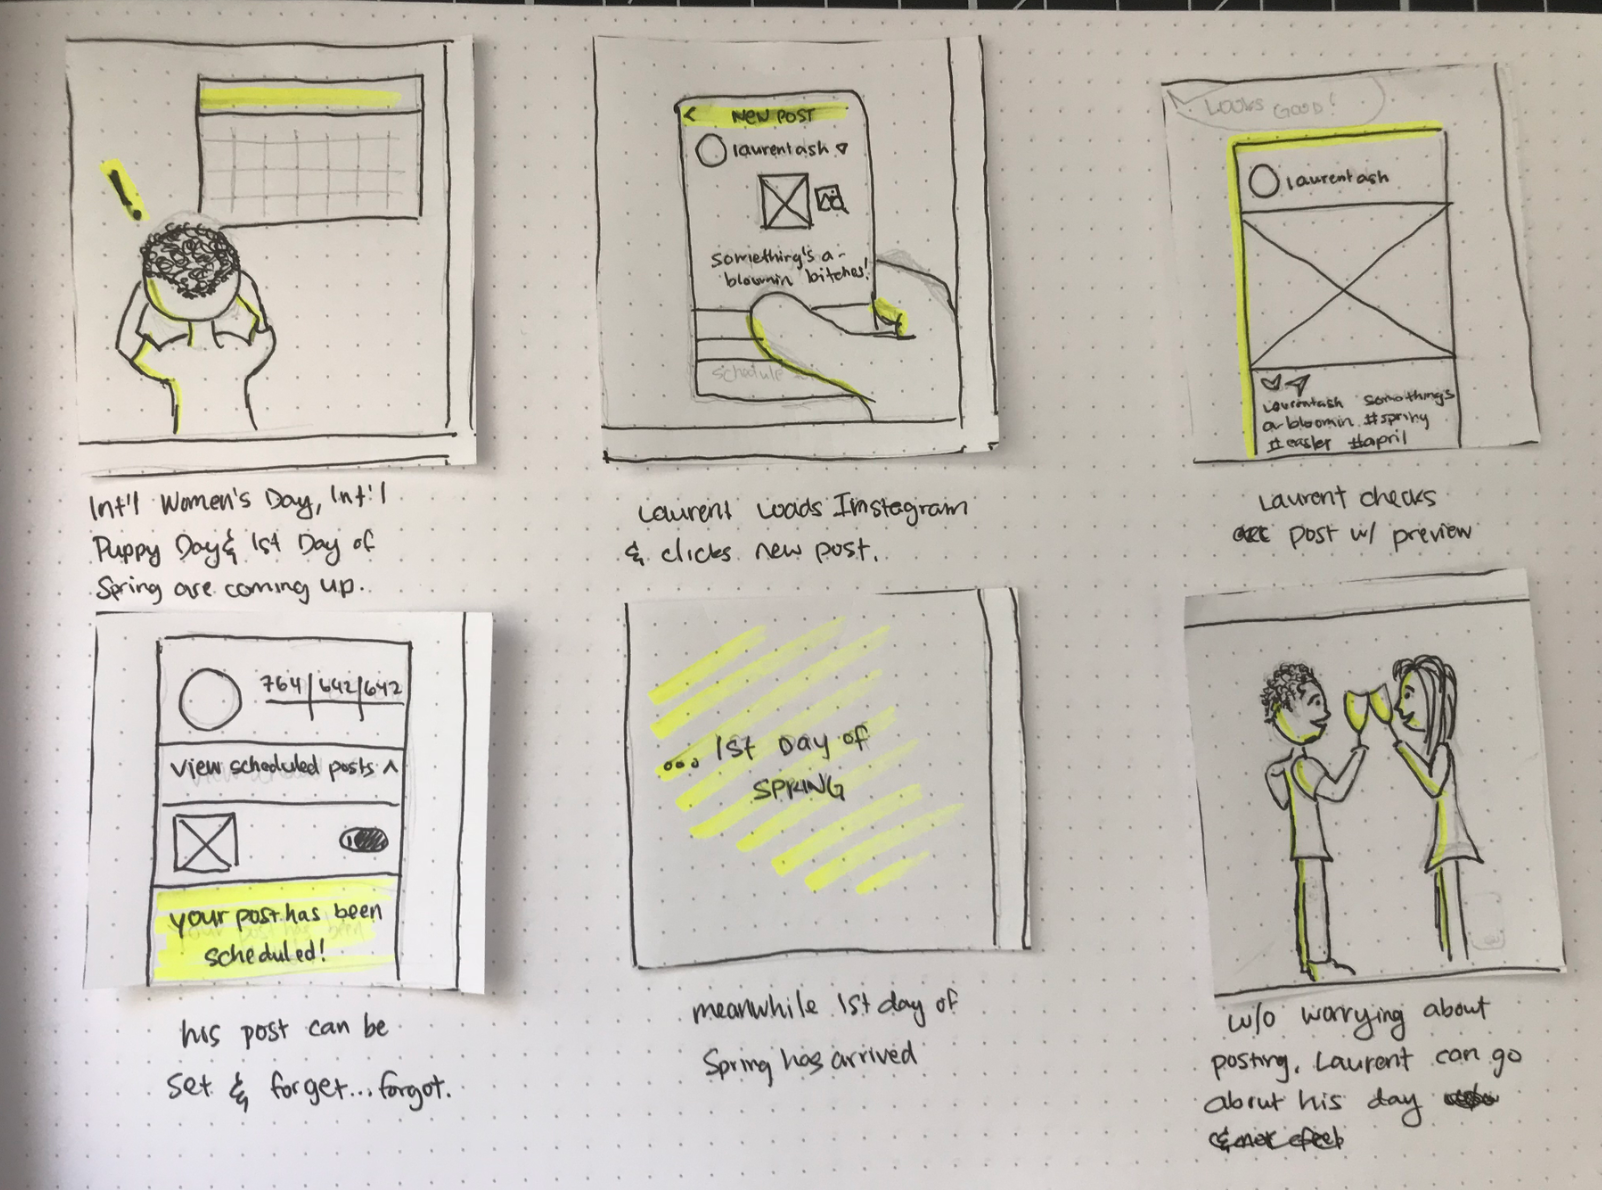 !
Int'l Women's Day, Int'l
Puppy Day & 1st Day of
Spring are coming up.
< NEW POST
laurentash
something's a-
bloomin bitches!
schedule
Laurent loads Instagram
& clicks new post.
LOOKS GOOD!
laurentash
laurentash somethings
a-bloomin #spring
#easter #april
Laurent checks
post w/ preview
764 | 642 | 642
view scheduled posts ^
your post has been
scheduled!
his post can be
set & forget...forgot.
... 1st DAY of
SPRING
meanwhile 1st day of
Spring has arrived
w/o worrying about
posting, Laurent can go
about his day